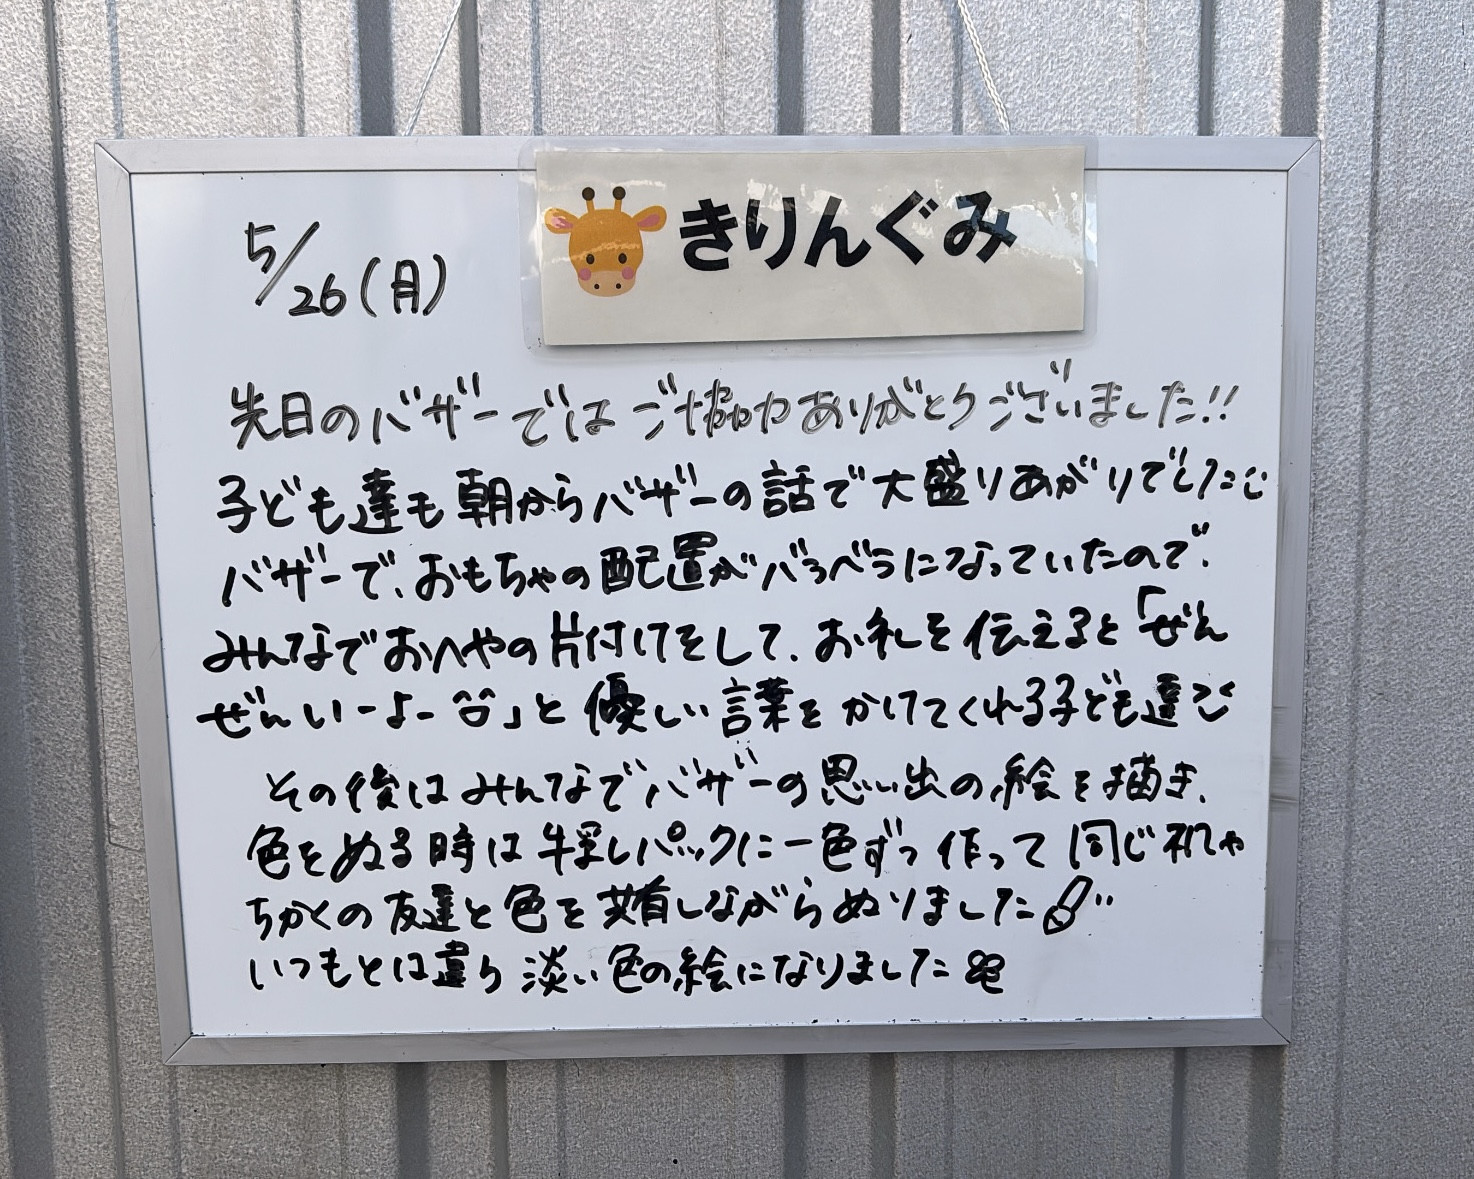 きりんぐみ
5/26(月)
先日のバザーではご協力ありがとうございました!!
子ども達も朝からバザーの話で大盛りあがりでした
バザーで、おもちゃの配置がバラバラになっていたので、
みんなでおへやの片付けをして、お礼を伝えると「ぜん
ぜんいーよー^^」と優しい言葉をかけてくれる子ども達
その後はみんなでバザーの思い出の絵を描き、
色をぬる時は牛乳パックに一色ずつ作って同じ机や
ちかくの友達と色を共有しながらぬりました
いつもとは違う淡い色の絵になりました